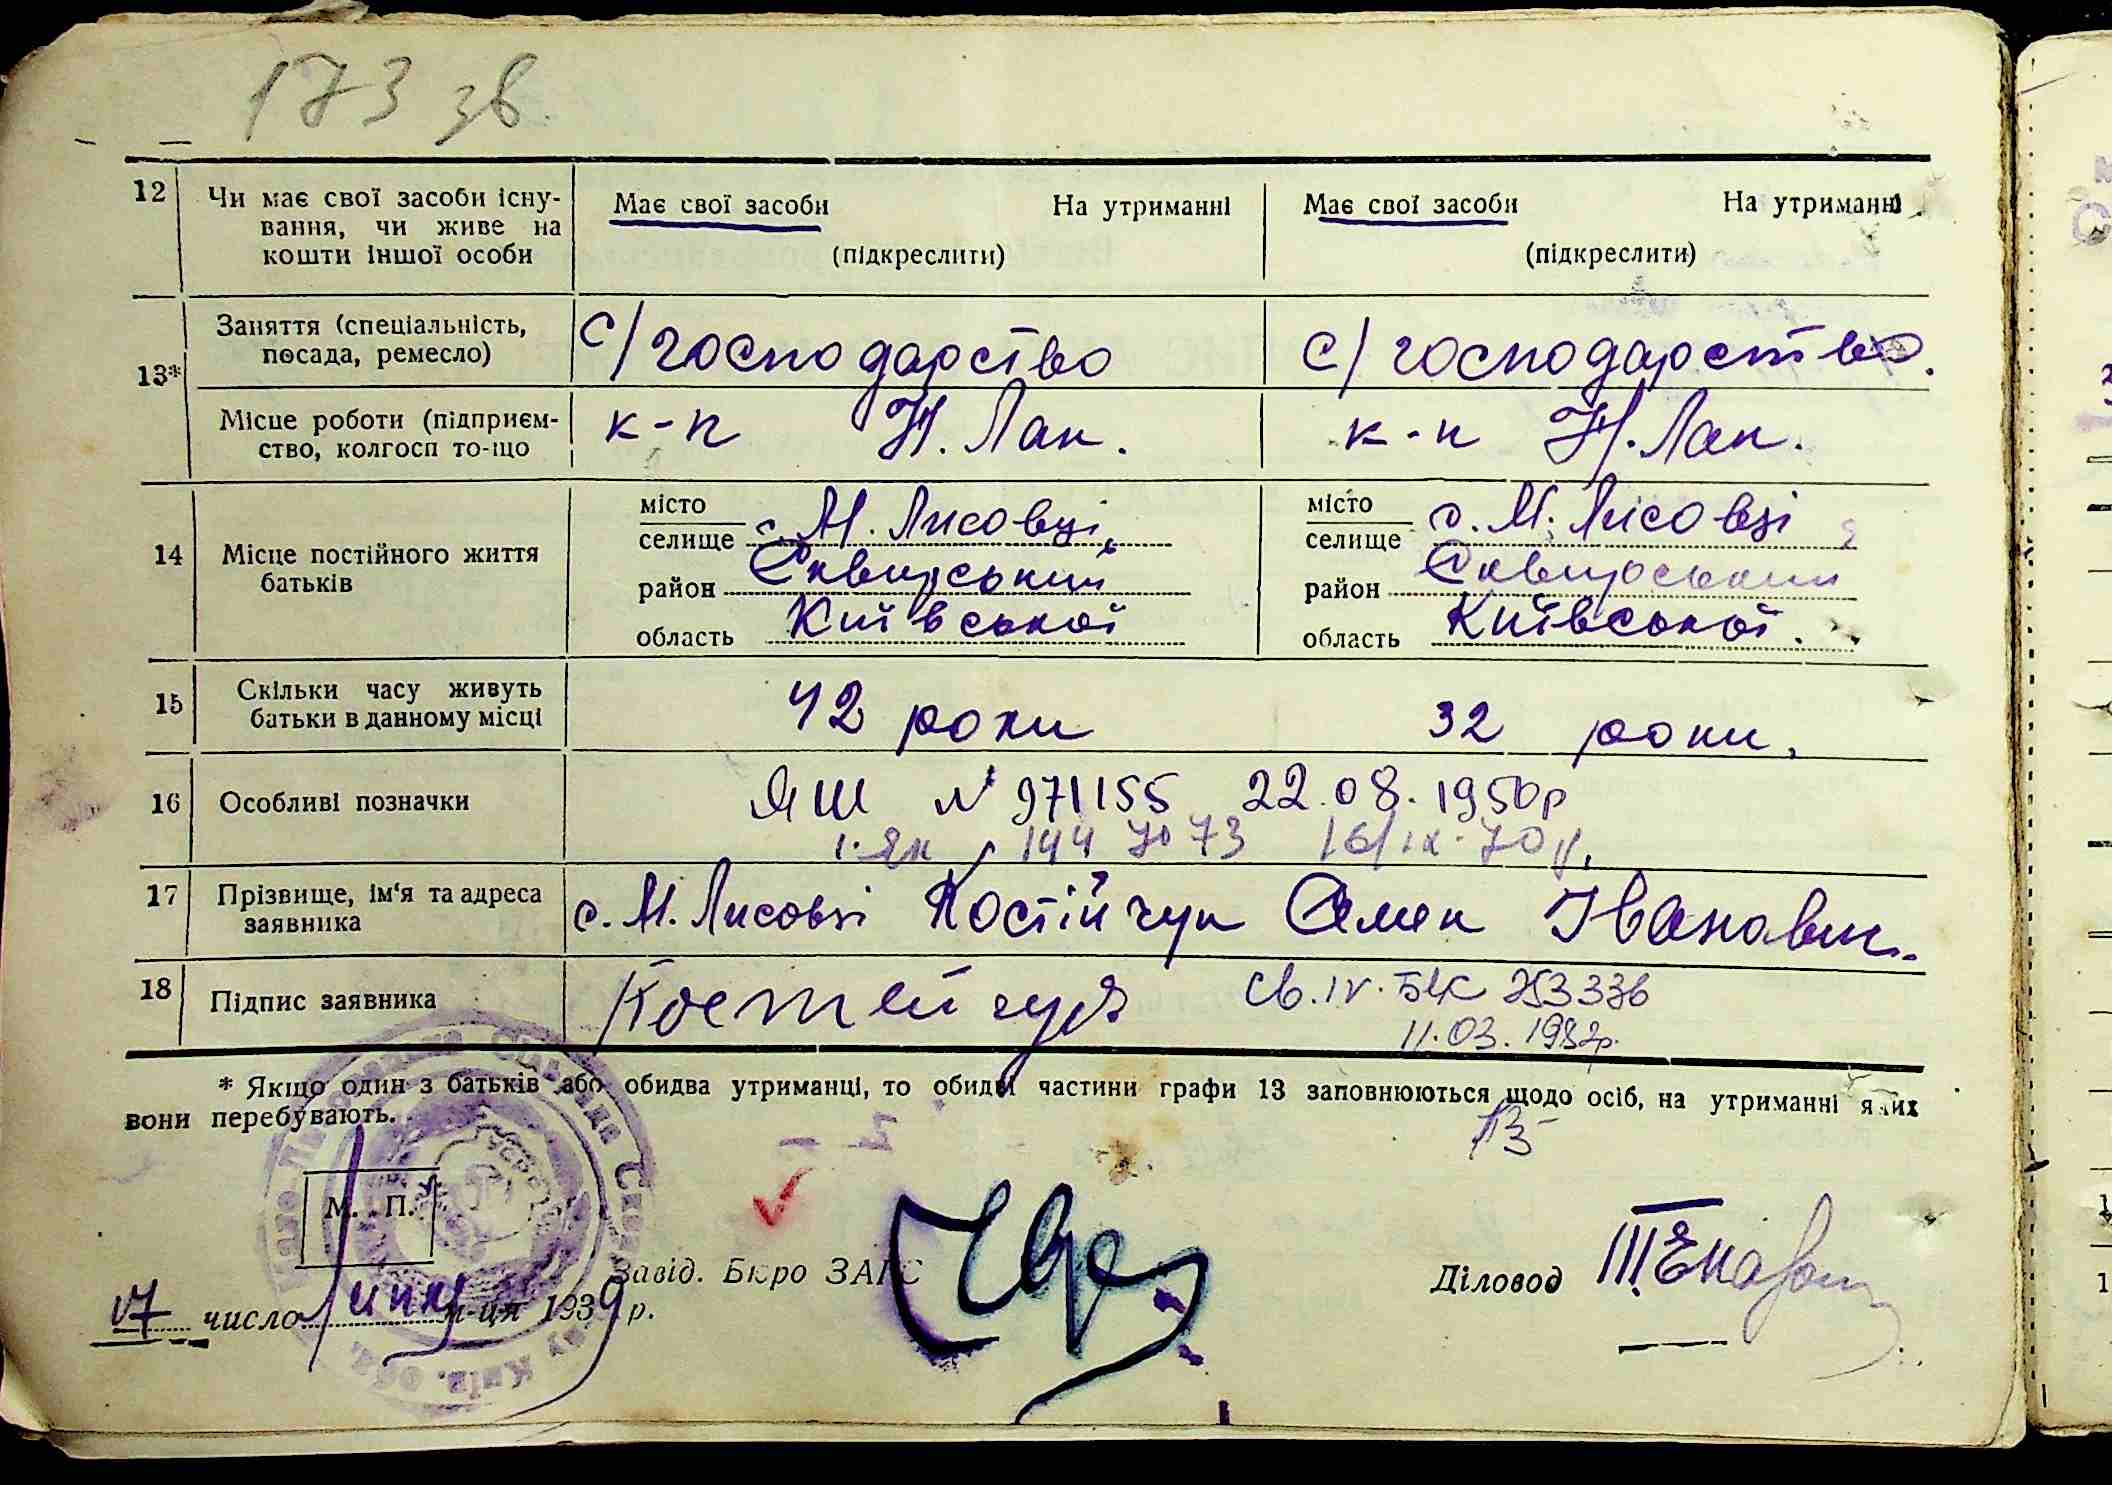 173 зв.
12 Чи має свої засоби існу- Має свої засоби На утриманні Має свої засоби На утриманні
вання, чи живе на
кошти іншої особи (підкреслити) (підкреслити)
13* Заняття (спеціальність,
посада, ремесло) с/господарство с/господарство.
Місце роботи (підприєм-
ство, колгосп то-що к-п Н. Лан. к-п Н. Лан.
14 Місце постійного життя
батьків
місто
селище с. М. Лисовці,
район Сквирський
область Київської
місто
селище с. М. Лисовці
район Сквирський
область Київської.
15 Скільки часу живуть
батьки в данному місці 42 роки 32 роки,
16 Особливі позначки ЯШ № 971155 22.08.1950р
144 7073 16/ІХ-70р.
17 Прізвище, ім'я та адреса
заявника с. М. Лисовці Костійчук Семен Іванович.
18 Підпис заявника Костейчук Св. IV-БК 253336
11.03.1982р.
* Якщо один з батьків або обидва утриманці, то обидві частини графи 13 заповнюються щодо осіб, на утриманні яких
вони перебувають.
М. П.
Завід. Бюро ЗАГС
Діловод
17 число Липня м-ця 1939 р.